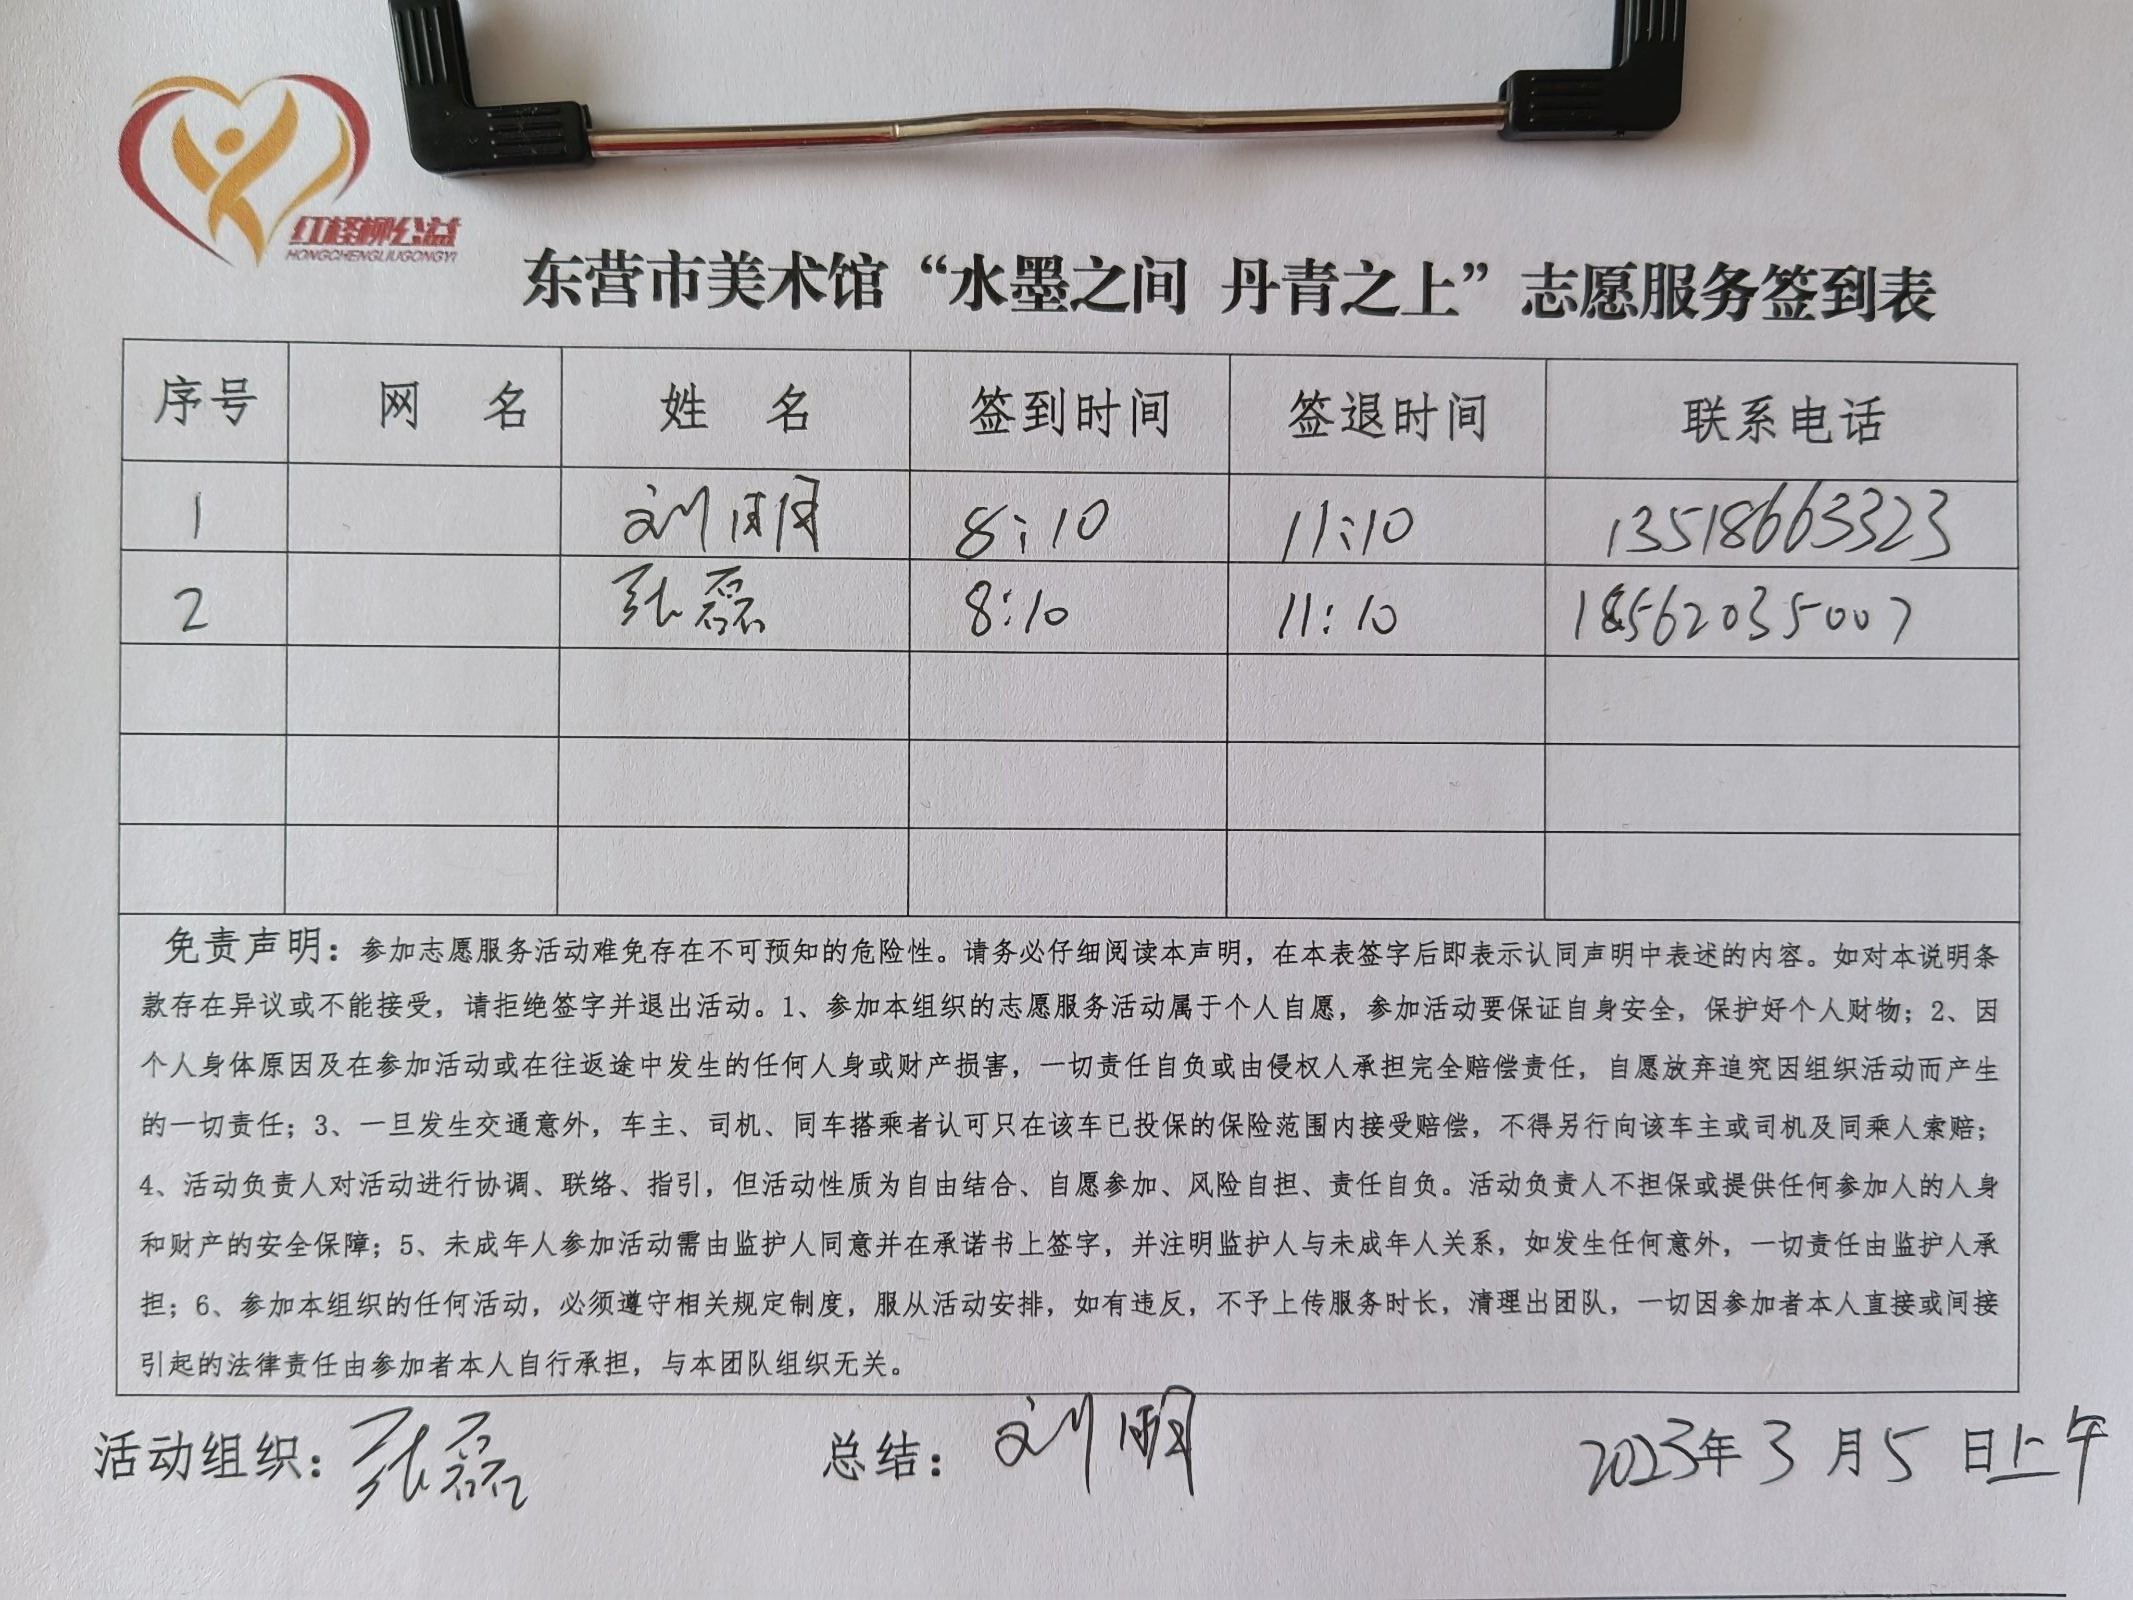 红柽柳公益
HONGCHENGLIUGONGYI
东营市美术馆“水墨之间 丹青之上”志愿服务签到表
序号 网 名 姓 名 签到时间 签退时间 联系电话
1 刘明 8:10 11:10 13518663323
2 张磊 8:10 11:10 18562035007
免责声明：参加志愿服务活动难免存在不可预知的危险性。请务必仔细阅读本声明，在本表签字后即表示认同声明中表述的内容。如对本说明条
款存在异议或不能接受，请拒绝签字并退出活动。1、参加本组织的志愿服务活动属于个人自愿，参加活动要保证自身安全，保护好个人财物；2、因
个人身体原因及在参加活动或在往返途中发生的任何人身或财产损害，一切责任自负或由侵权人承担完全赔偿责任，自愿放弃追究因组织活动而产生
的一切责任；3、一旦发生交通意外，车主、司机、同车搭乘者认可只在该车已投保的保险范围内接受赔偿，不得另行向该车主或司机及同乘人索赔；
4、活动负责人对活动进行协调、联络、指引，但活动性质为自由结合、自愿参加、风险自担、责任自负。活动负责人不担保或提供任何参加人的人身
和财产的安全保障；5、未成年人参加活动需由监护人同意并在承诺书上签字，并注明监护人与未成年人关系，如发生任何意外，一切责任由监护人承
担；6、参加本组织的任何活动，必须遵守相关规定制度，服从活动安排，如有违反，不予上传服务时长，清理出团队，一切因参加者本人直接或间接
引起的法律责任由参加者本人自行承担，与本团队组织无关。
活动组织：张磊 总结：刘明 2023年3月5日上午